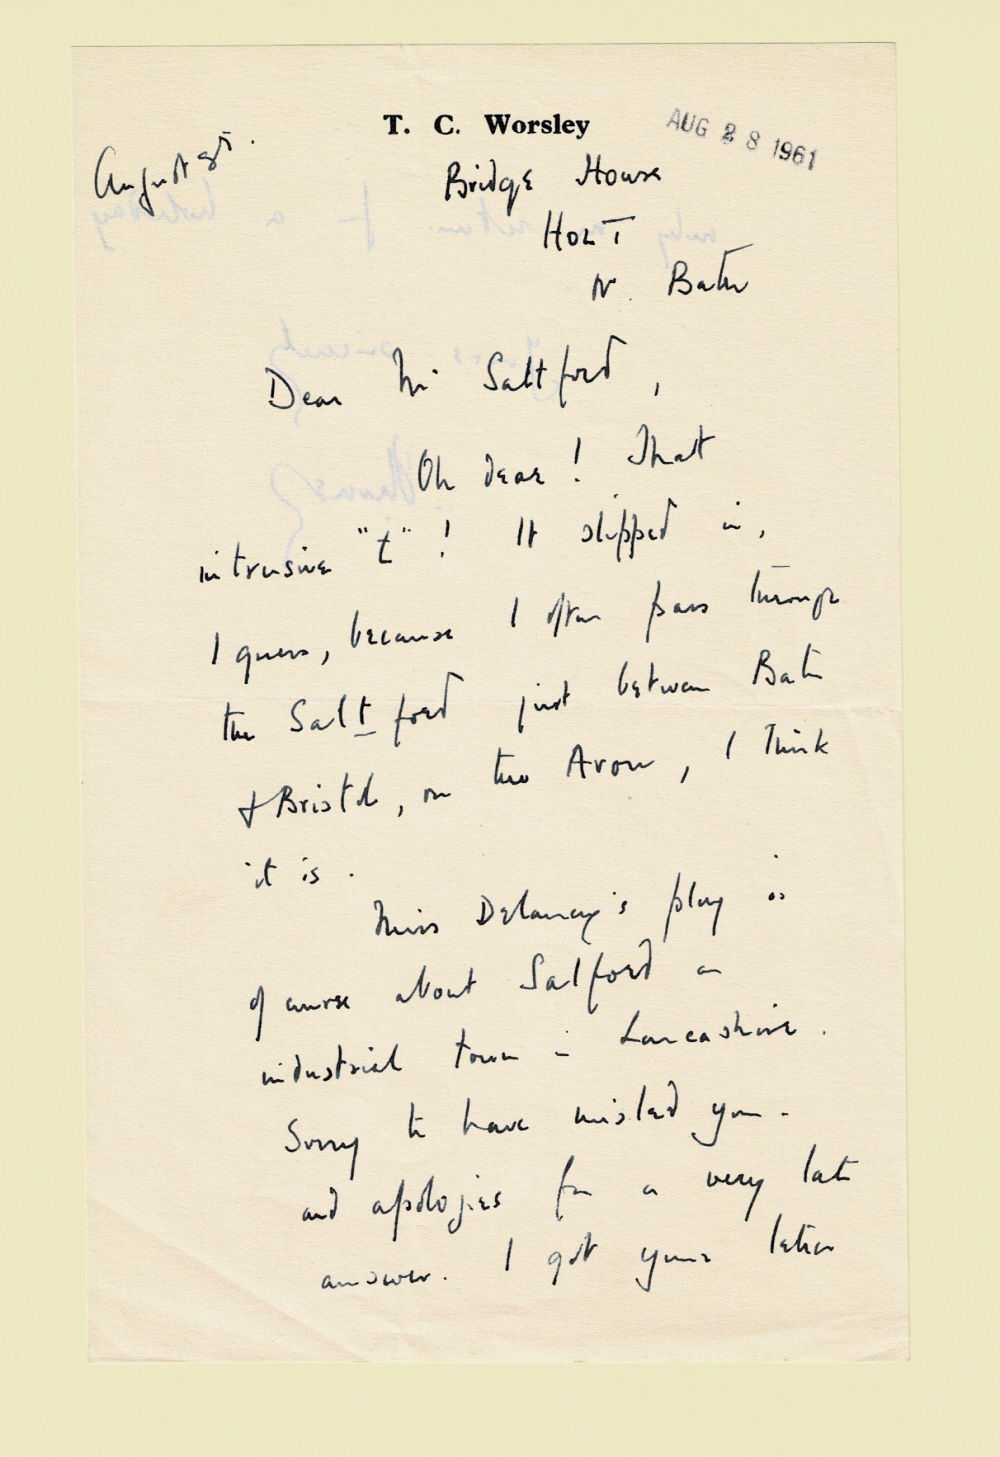 T. C. Worsley
AUG 28 1961
August
Bridge House
HOLT
Nr. Bath
Dear Mr Saltford,
Oh dear! That
intrusive "t"! It slipped in,
I guess, because I often pass through
the Saltford just between Bath
& Bristol, on the Avon, I think
it is.
Miss Delaney's play is
of course about Salford an
industrial town in Lancashire.
Sorry to have misled you.
and apologies for a very late
answer. I got your letter
only on return from a holiday
Yours sincerely